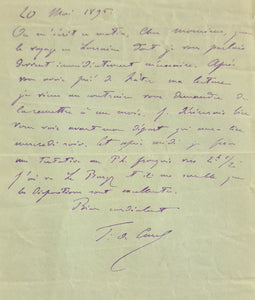 20 Mai 1895
On m'écrit ce matin, cher monsieur, que
le voyage en Lorraine dont je vous parlais
devient immédiatement nécessaire. Après
vous avoir prié de hâter ma lecture
je viens au contraire vous demander de
la remettre à un mois. J'
vous voir avant mon départ qui aura lieu
mercredi soir. Cet après midi je
au Th. français vers 2 h 1/2
J'ai vu Le Bargy et il me semble que
les dispositions sont excellentes.
Bien cordialement
F. de Curel